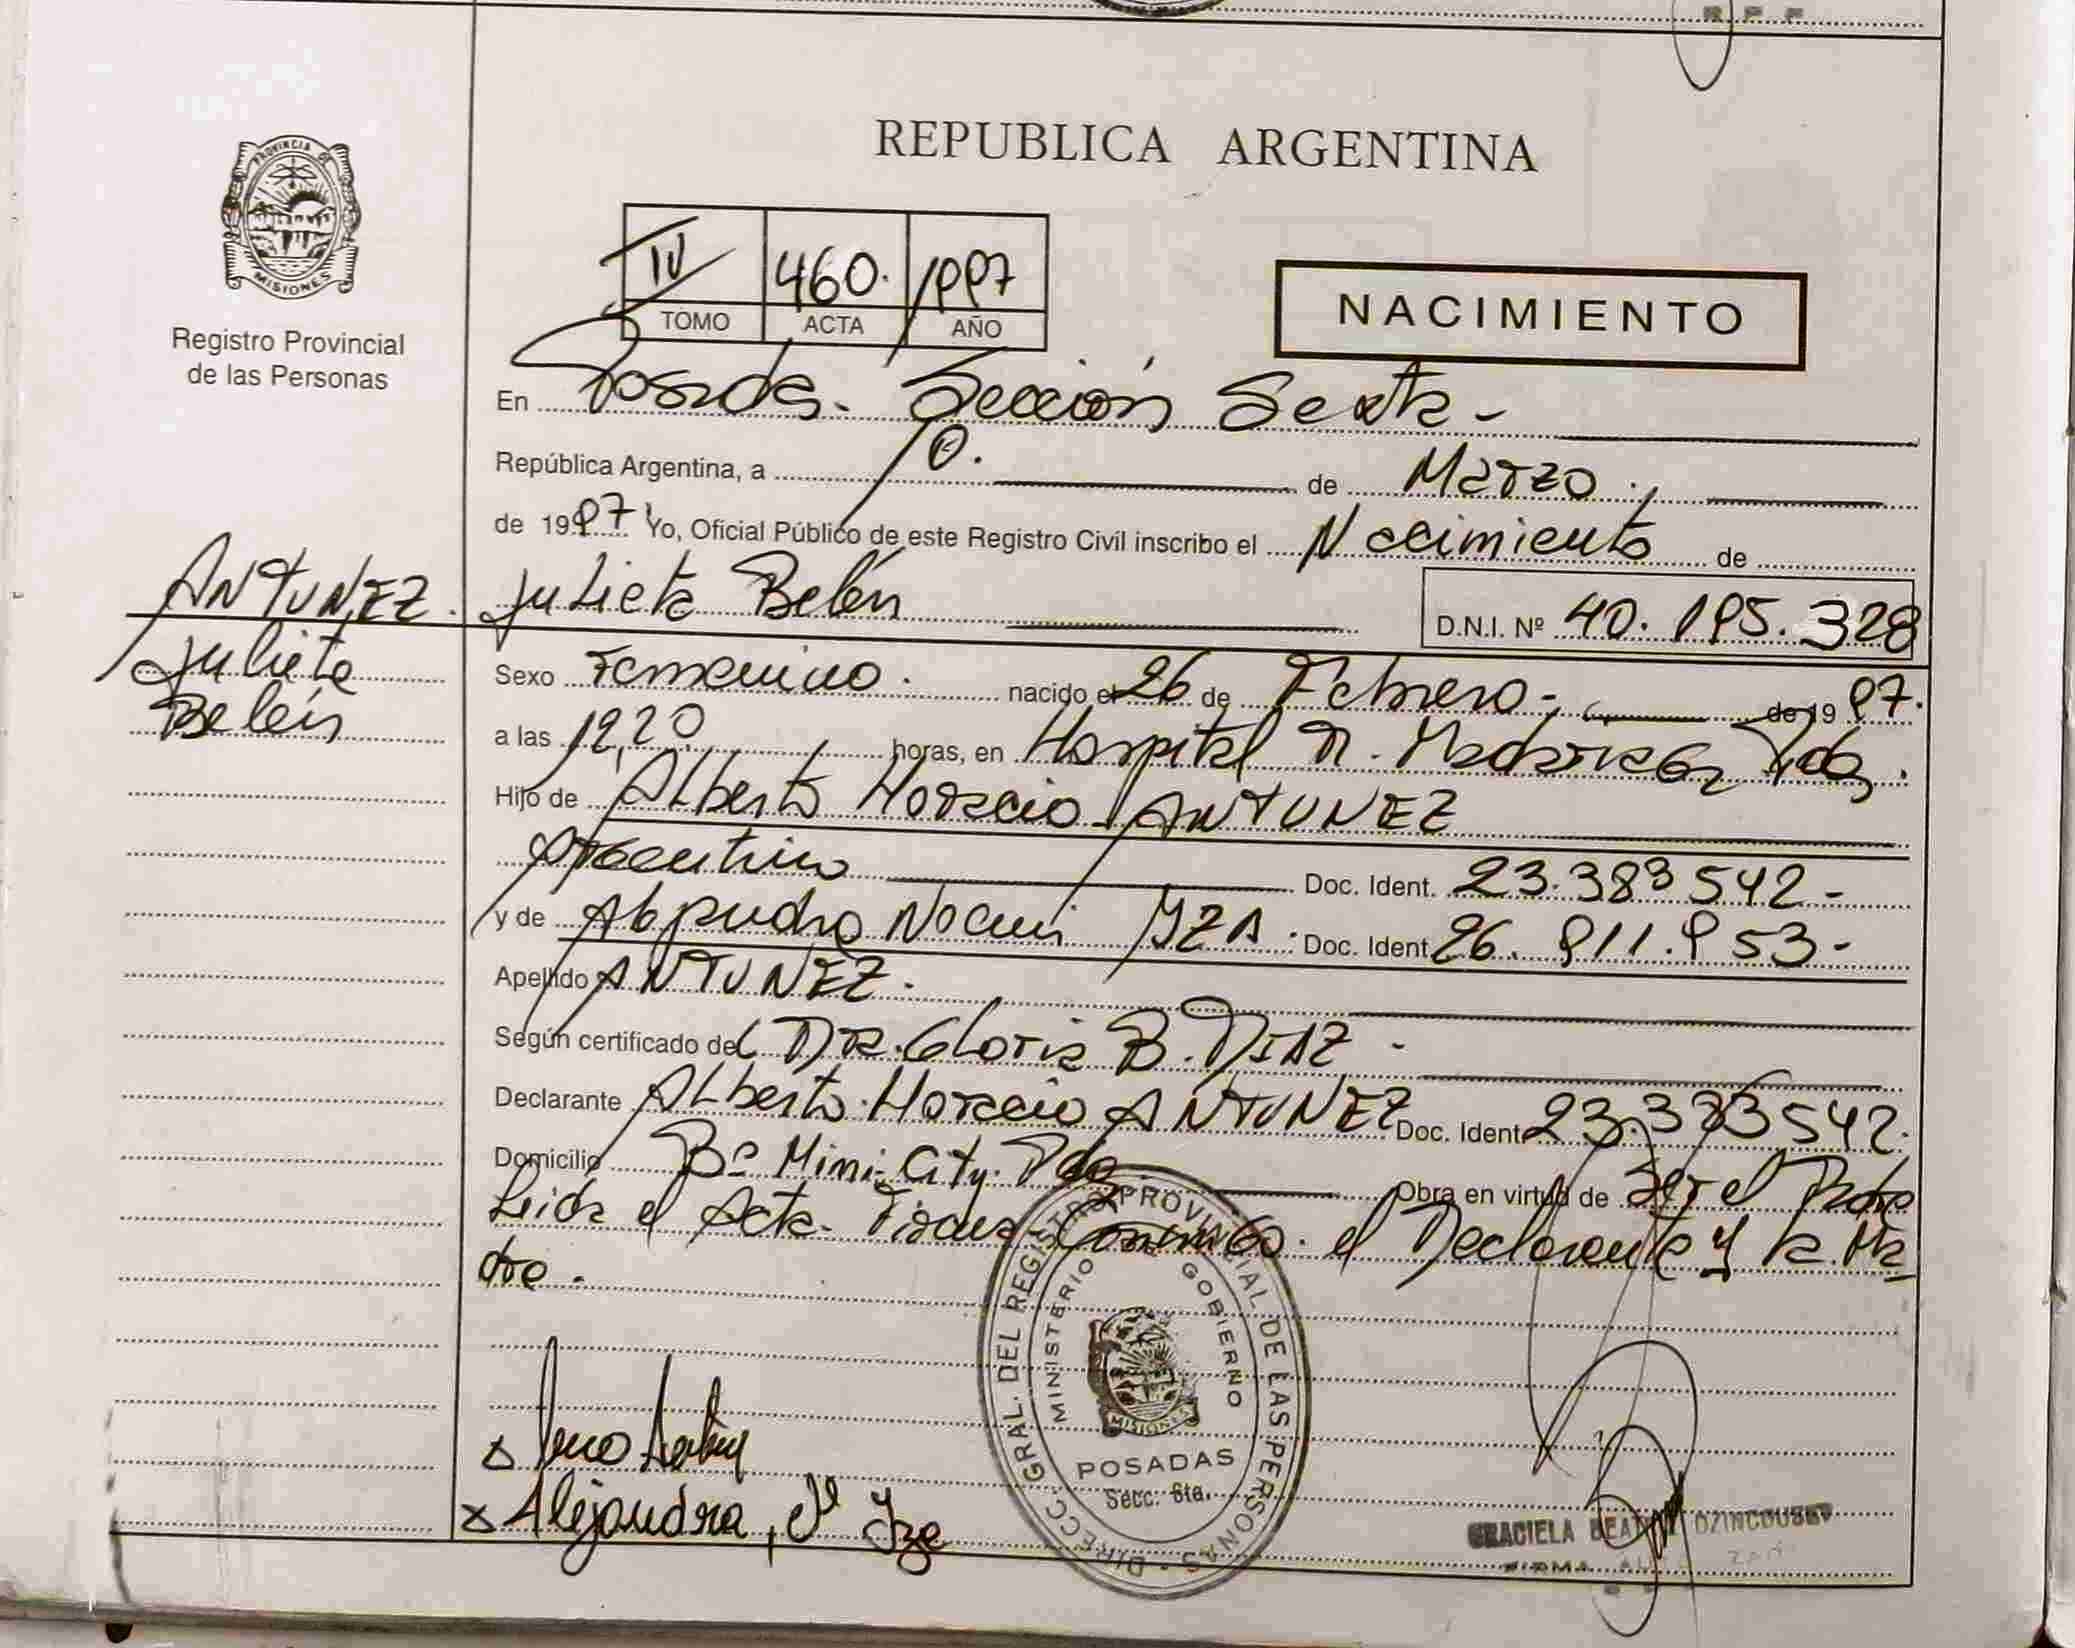 REPUBLICA ARGENTINA
PROVINCIA DE
MISIONES
Registro Provincial
de las Personas
IV 460. 1997
TOMO ACTA AÑO
NACIMIENTO
En Posadas. Sección Sexta -
República Argentina, a 10. de Marzo
de 1997 Yo, Oficial Público de este Registro Civil inscribo el Nacimiento de
ANTUNEZ.
Julieta
Belén
Julieta Belén D.N.I. Nº 40.195.328
Sexo Femenino. nacido el 26 de Febrero de 1997.
a las 12,20 horas, en Hospital R. Madariaga Pdas.
Hijo de Alberto Horacio ANTUNEZ
Argentino Doc. Ident. 23.383542-
y de Alejandra Noemi YZA. Doc. Ident. 26.911.953-
Apellido ANTUNEZ.
Según certificado de Dra. Gloria B. DIAZ.
Declarante Alberto Horacio ANTUNEZ Doc. Ident. 23.383542.
Domicilio Bº Mini-City. Pdas Obra en virtud de Ser el Padre
Leida el Acta Firman conmigo. el Declarante y la Ma
dre.
Alejandra, Yza
DIRECC. GRAL. DEL REGISTRO PROVINCIAL DE LAS PERSONAS
MINISTERIO GOBIERNO
MISIONES
POSADAS
Secc. 6ta.
GRACIELA